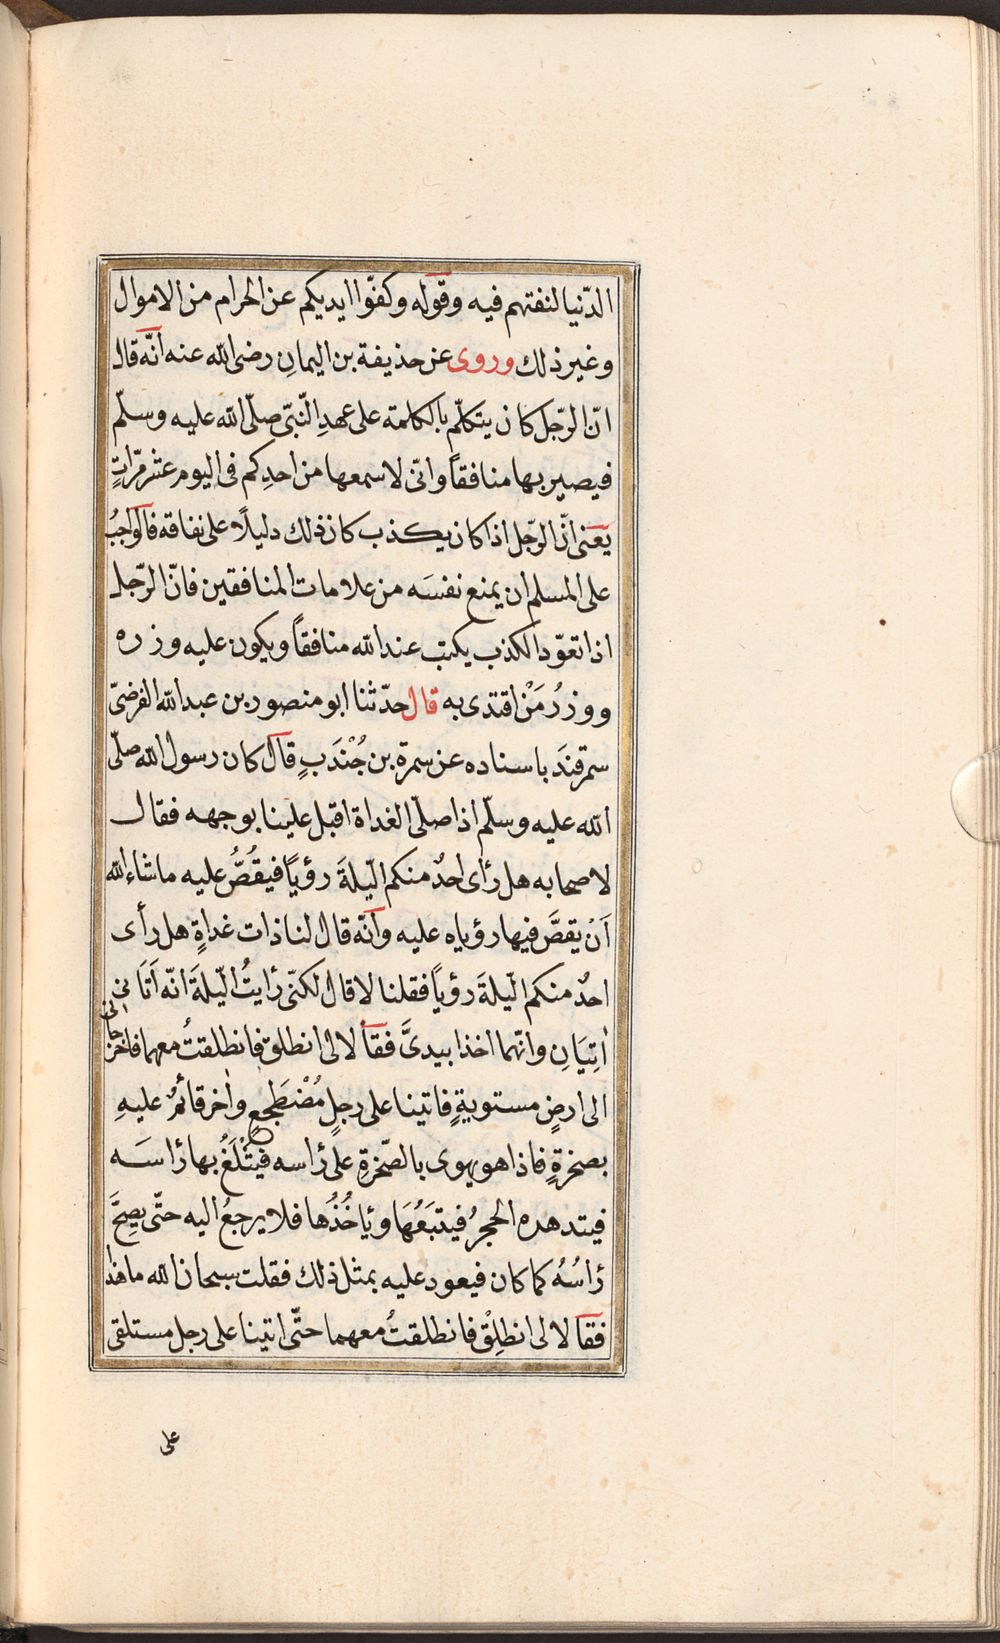 الدّنيا لنفتهم فيه وقوله وكفّوا ايديكم عن الحرام من الاموال
وغير ذلك وروى عن حذيفة بن اليمانِ رضى الله عنه أنّه قال
انّ الرّجل كان يتكلّم بالكلمة على عهدِ النّبىّ صلّى الله عليه وسلّم
فيصير بها منافقاً وانّى لاسمعها من احدِكم فى اليوم عشر مرّاتٍ
يعنى انّ الرّجل اذا كان يكذب كان ذلك دليلًا على نفاقه فالواجبُ
على المسلم ان يمنع نفسَه من علامات المنافقين فانّ الرّجل
اذا تعوّد الكذب يكتب عند الله منافقاً ويكون عليه وزره
ووزرُ مَنْ اقتدى به قال حدّثنا ابو منصور بن عبد الله الفرضىّ
سمرقندَ باسناده عن سمرة بن جُنْدَبٍ قال كان رسول الله صلّى
الله عليه وسلّم اذا صلّى الغداة اقبل علينا بوجهه فقال
لاصحابه هل رأى احدٌ منكم الّيلةَ رؤياً فيقُصُّ عليه ما شاء الله
اَنْ يقصَّ فيها رؤياه عليه وأنّه قال لنا ذات غداةٍ هل رأى
احدٌ منكم الّيلةَ رؤياً فقلنا لا قال لكنّى رأيتُ الّيلةَ انّه اَتَانى
اٰتِيَانِ وانّهما اخذا بيدىَّ فقالا لى انطلق فانطلقتُ معهما فاخرجانى
الى ارضٍ مستويةٍ فاتينا على رجلٍ مُضْطَجعٍ واٰخر قائمٌ عليهِ
بصخرةٍ فاذا هو يهوى بالصّخرةِ على رأسه فيَثْلَغُ بها رأسَه
فيتدهده الحجرُ فيتبَعُهَا ويأخُذُها فلا يرجعُ اليه حتّى يصِحَّ
رأسُهُ كما كان فيعود عليه بمثل ذلك فقلت سبحان الله ما هذا
فقالا لى انطلِقْ فانطلقتُ معهما حتّى اتينا على رجل مستلقى
على